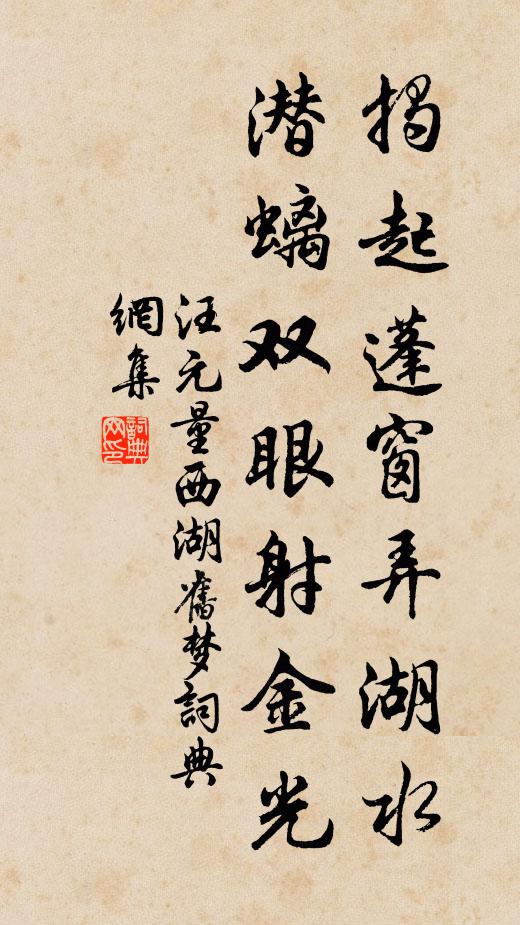 揭起蓬窗弄湖水
潜螭双眼射金光
汪元量西湖舊梦詞典
網集
詞典
网印